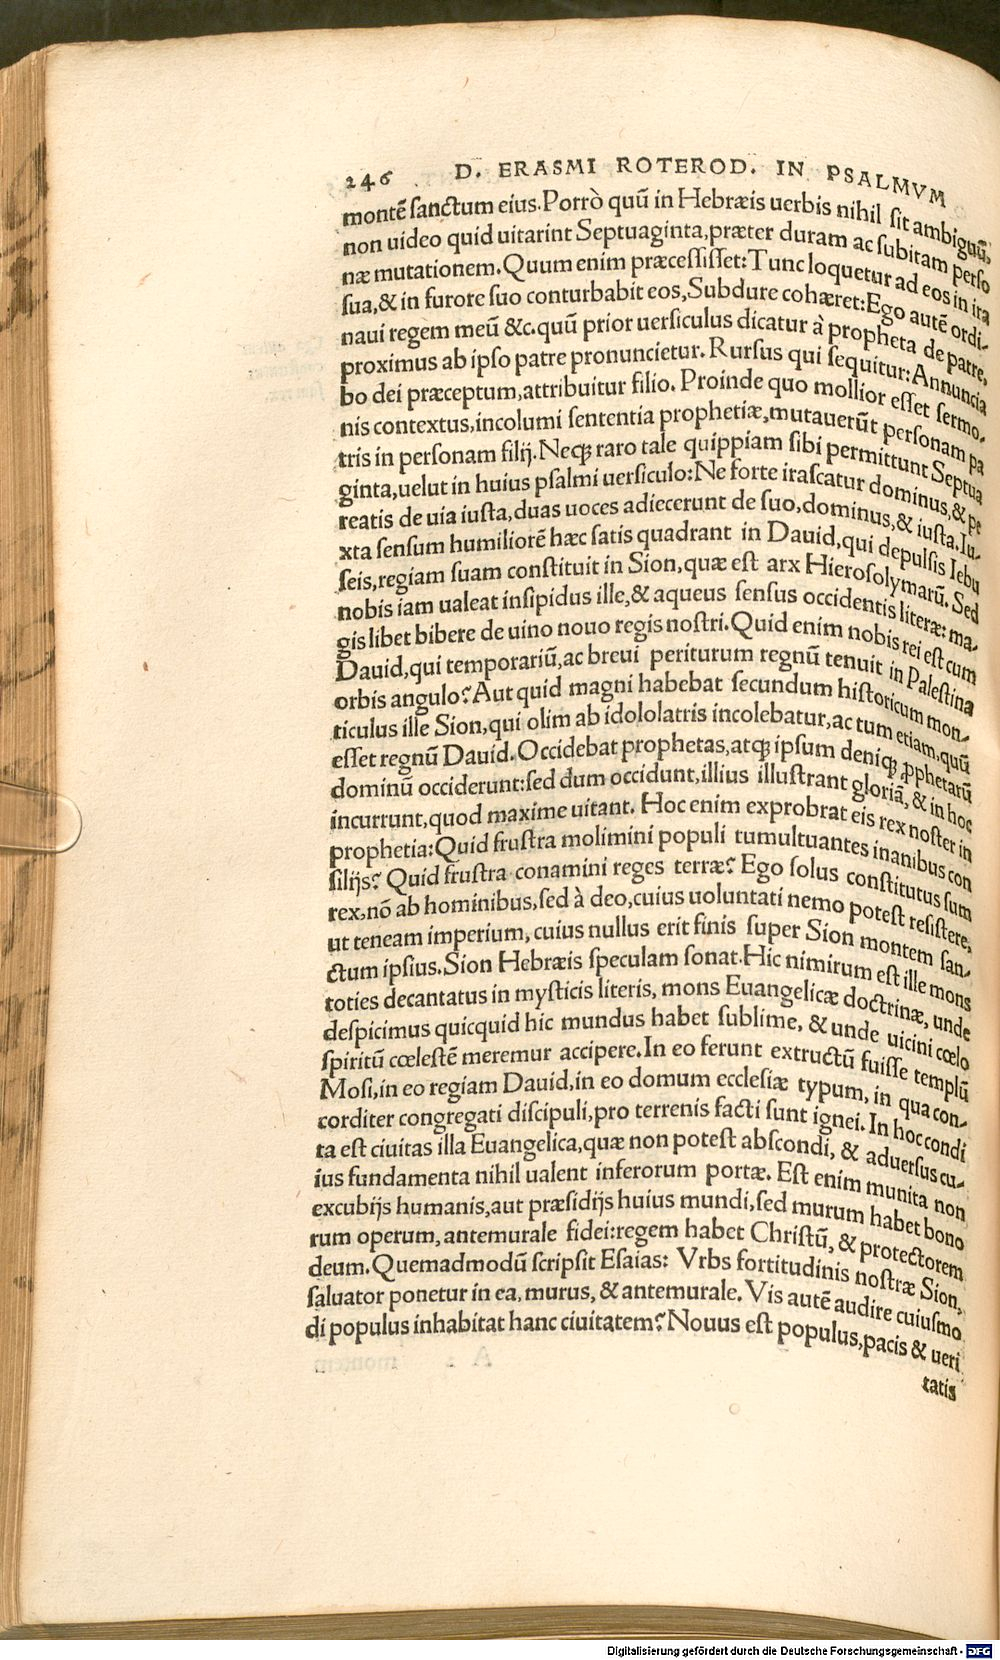 246 D. ERASMI ROTEROD. IN PSALMVM
montē sanctum eius. Porrò quū in Hebræis uerbis nihil sit ambiguū,
non uideo quid uitarint Septuaginta, præter duram ac subitam perso
næ mutationem. Quum enim præcessisset: Tunc loquetur ad eos in ira
sua, & in furore suo conturbabit eos, Subdure cohæret: Ego autē ordi-
naui regem meū &c. quū prior uersiculus dicatur à propheta de patre,
proximus ab ipso patre pronuncietur. Rursus qui sequitur: Annuncia
bo dei præceptum, attribuitur filio. Proinde quo mollior esset sermo-
nis contextus, incolumi sententia prophetiæ, mutauerūt personam pa
tris in personam filij. Neqꝫ raro tale quippiam sibi permittunt Septua
ginta, uelut in huius psalmi uersiculo: Ne forte irascatur dominus, & pe
reatis de uia iusta, duas uoces adiecerunt de suo, dominus, & iusta. Iu-
xta sensum humiliorē hæc satis quadrant in Dauid, qui depulsis Iebu
seis, regiam suam constituit in Sion, quæ est arx Hierosolymarū. Sed
nobis iam ualeat insipidus ille, & aqueus sensus occidentis literæ: ma-
gis libet bibere de uino nouo regis nostri. Quid enim nobis rei est cum
Dauid, qui temporariū, ac breui periturum regnū tenuit in Palestina
orbis angulo? Aut quid magni habebat secundum historicum mon-
ticulus ille Sion, qui olim ab idololatris incolebatur, ac tum etiam, quū
esset regnū Dauid. Occidebat prophetas, atqꝫ ipsum deniqꝫ ꝓphetarū
dominū occiderunt: sed dum occidunt, illius illustrant gloriā, & in hoc
incurrunt, quod maxime uitant. Hoc enim exprobrat eis rex noster in
prophetia: Quid frustra molimini populi tumultuantes inanibus con
silijs? Quid frustra conamini reges terræ? Ego solus constitutus sum
rex, nō ab hominibus, sed à deo, cuius uoluntati nemo potest resistere,
ut teneam imperium, cuius nullus erit finis super Sion montem san-
ctum ipsius. Sion Hebræis speculam sonat. Hic nimirum est ille mons
toties decantatus in mysticis literis, mons Euangelicæ doctrinæ, unde
despicimus quicquid hic mundus habet sublime, & unde uicini cœlo
spiritū cœlestē meremur accipere. In eo ferunt extructū fuisse templū
Mosi, in eo regiam Dauid, in eo domum ecclesiæ typum, in qua con-
corditer congregati discipuli, pro terrenis facti sunt ignei. In hoc condi
ta est ciuitas illa Euangelica, quæ non potest abscondi, & aduersus cu-
ius fundamenta nihil ualent inferorum portæ. Est enim munita non
excubijs humanis, aut præsidijs huius mundi, sed murum habet bono
rum operum, antemurale fidei: regem habet Christū, & protectorem
deum. Quemadmodū scripsit Esaias: Vrbs fortitudinis nostræ Sion,
saluator ponetur in ea, murus, & antemurale. Vis autē audire cuiusmo
di populus inhabitat hanc ciuitatem? Nouus est populus, pacis & ueri
tatis
Digitalisierung gefördert durch die Deutsche Forschungsgemeinschaft - DFG